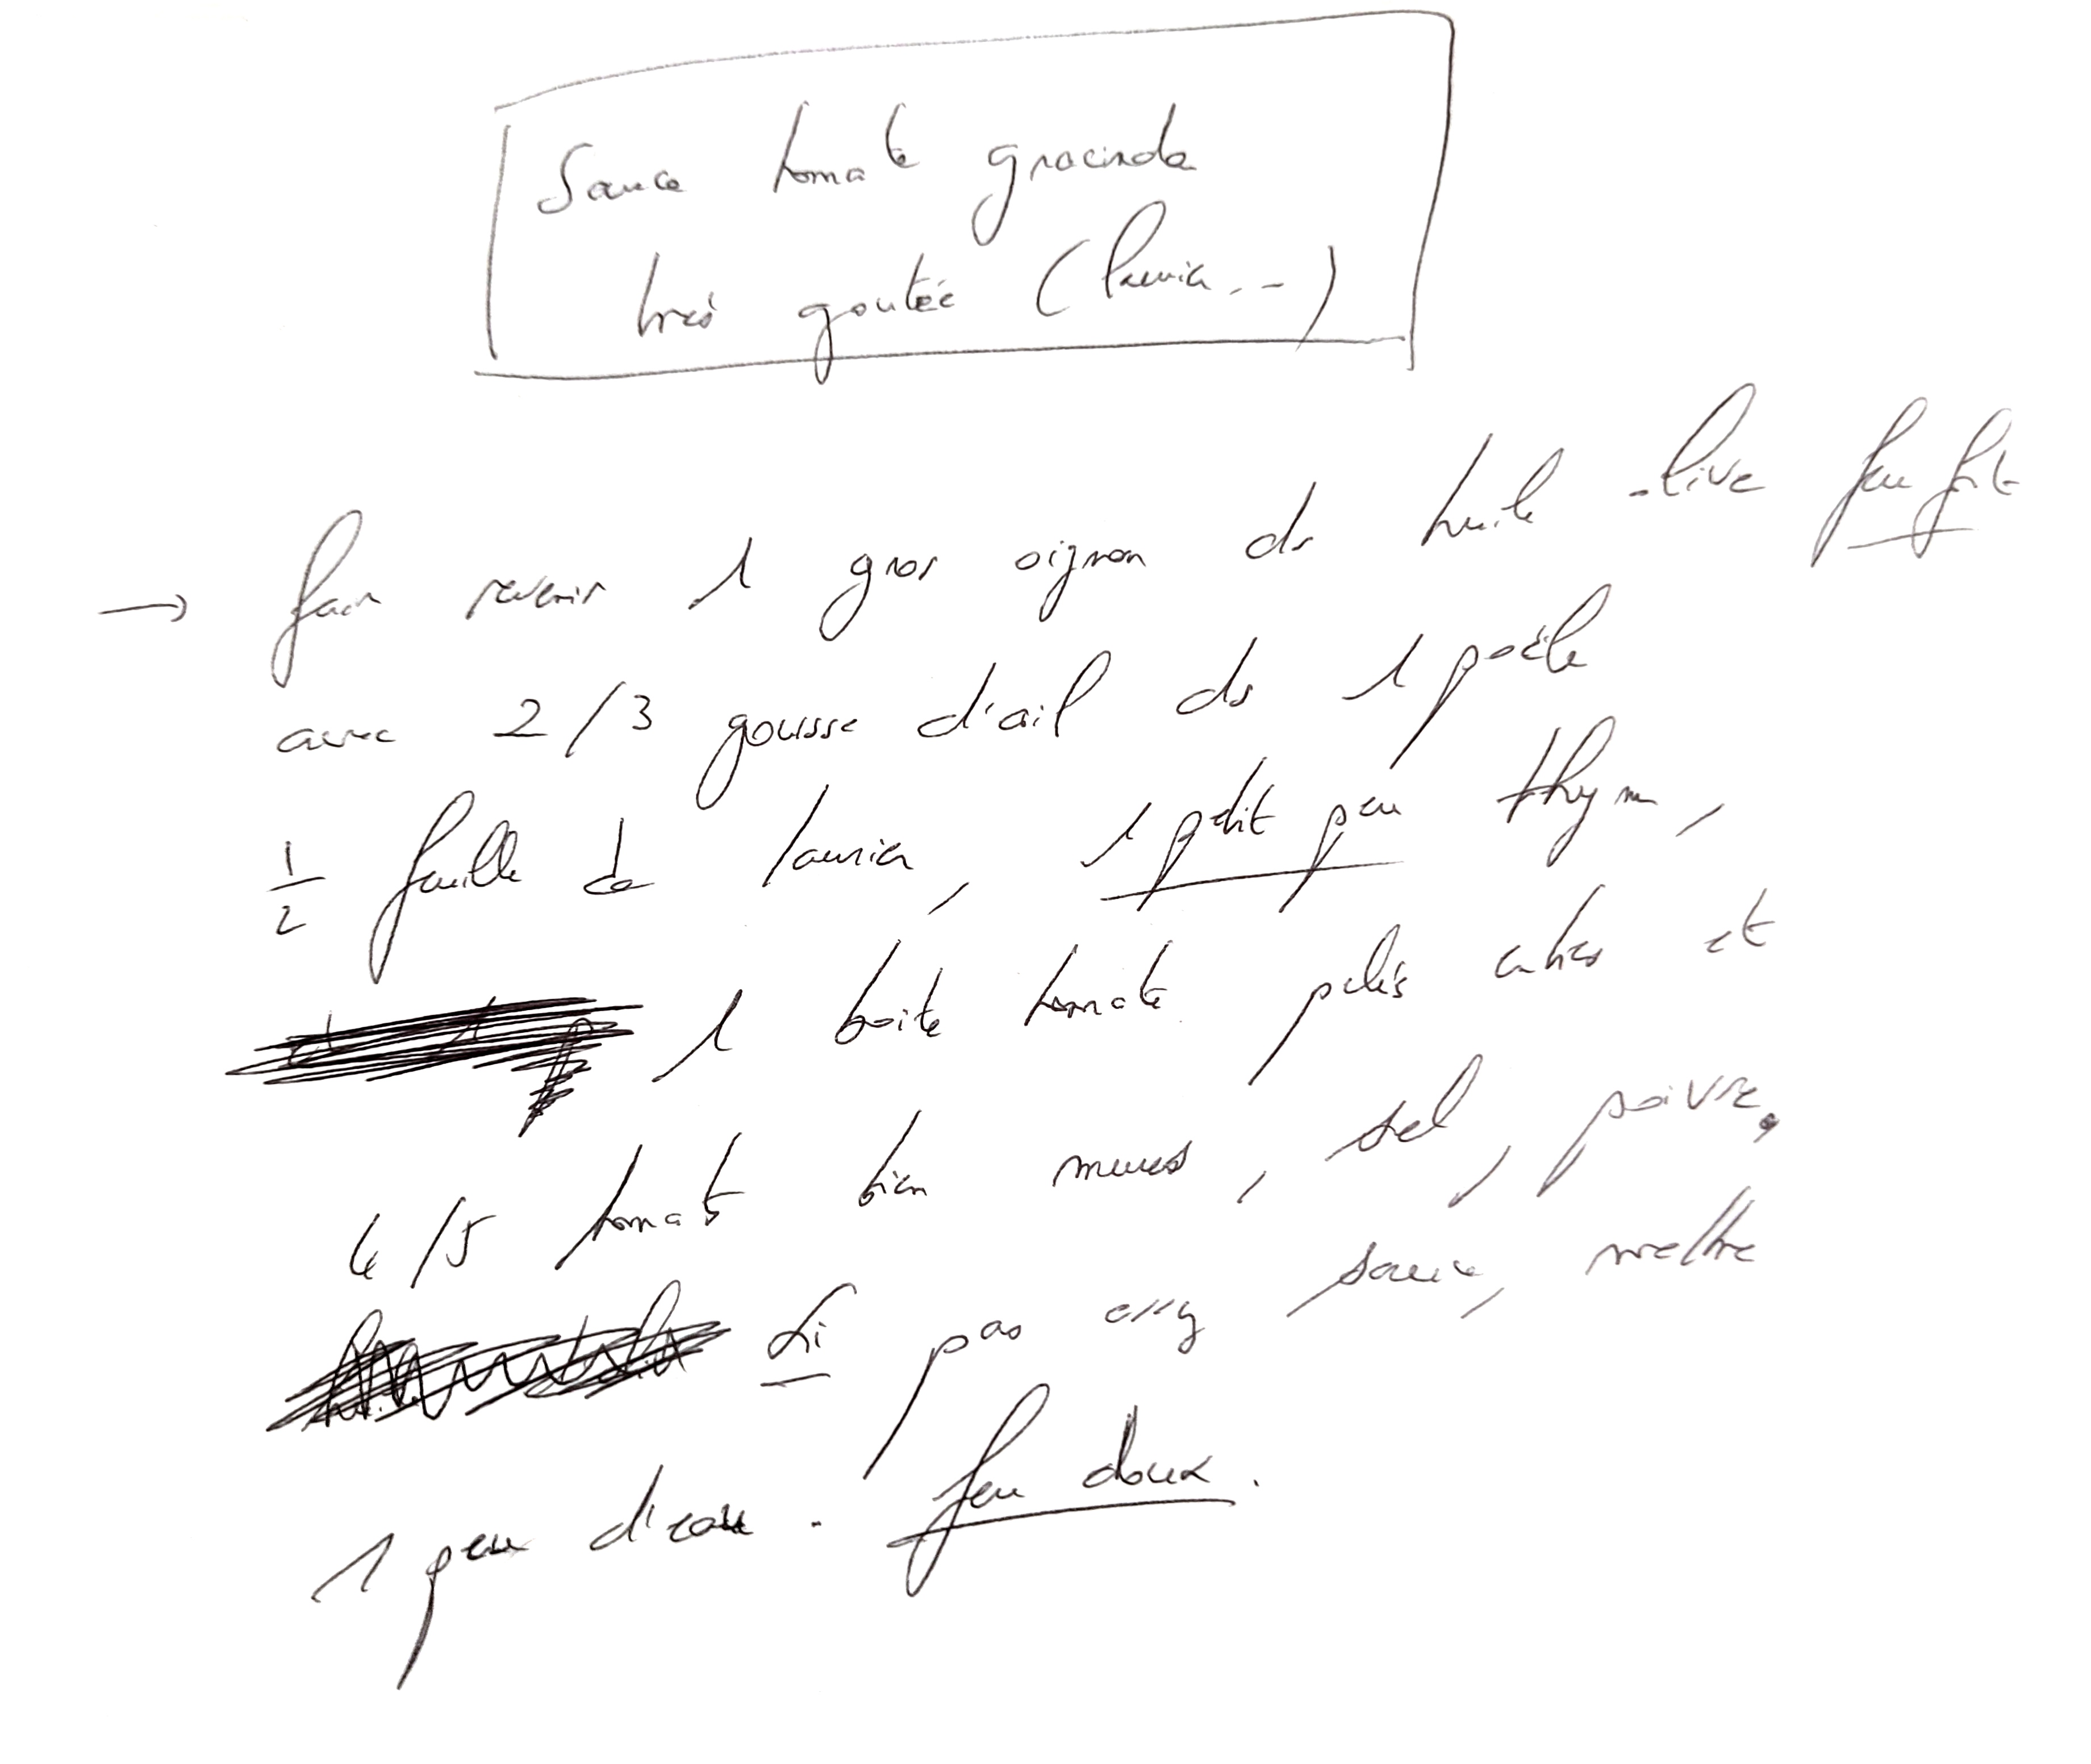 Sauce tomate gracinda
très goutée (laurier...)
→ faire revenir 1 gros oignon ds huile olive feu fort
avec 2/3 gousse d'ail ds 1 poële
1/2 feuille de laurier, 1 petit peu thym,
1 boite tomate pelés entières et
4/5 tomates bien mures, sel, poivre,
Si pas assez sauce, mettre
1 peu d'eau. feu doux.